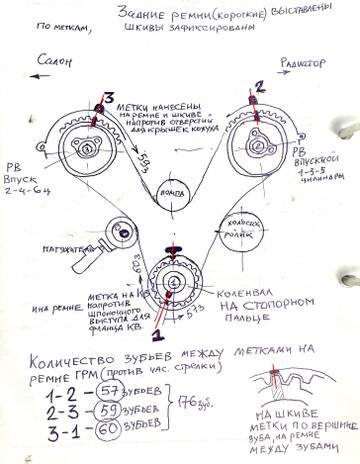 Задние ремни (короткие) выставлены
по меткам, шкивы зафиксированы
Салон
Радиатор
3
2
Метки нанесены
на ремне и шкиве
напротив отверстий
для крышек кожуха
59з
РВ
Впуск
2-4-6ц
РВ
Впускной
1-3-5
цилиндры
помпа
натяжитель
холостой
ролик
60з
57з
Метка на КВ
и на ремне напротив
шпоночного
выступа для
фланца КВ
1
Коленвал
на стопорном
пальце
Количество зубьев между метками на
ремне ГРМ (против час. стрелки)
1-2 - 57 зубьев
2-3 - 59 зубьев
3-1 - 60 зубьев
176 зуб.
На шкиве
метки по вершине
зуба, на ремне
между зубами